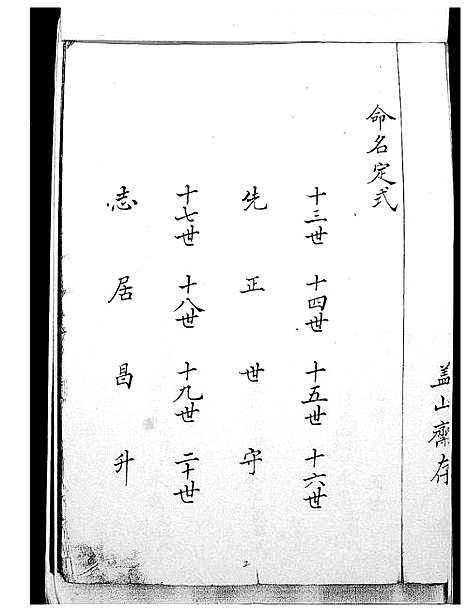 盖山齋存
命名定式
十三世 十四世 十五世 十六世
先 正 世 守
十七世 十八世 十九世 二十世
志 居 昌 升
2